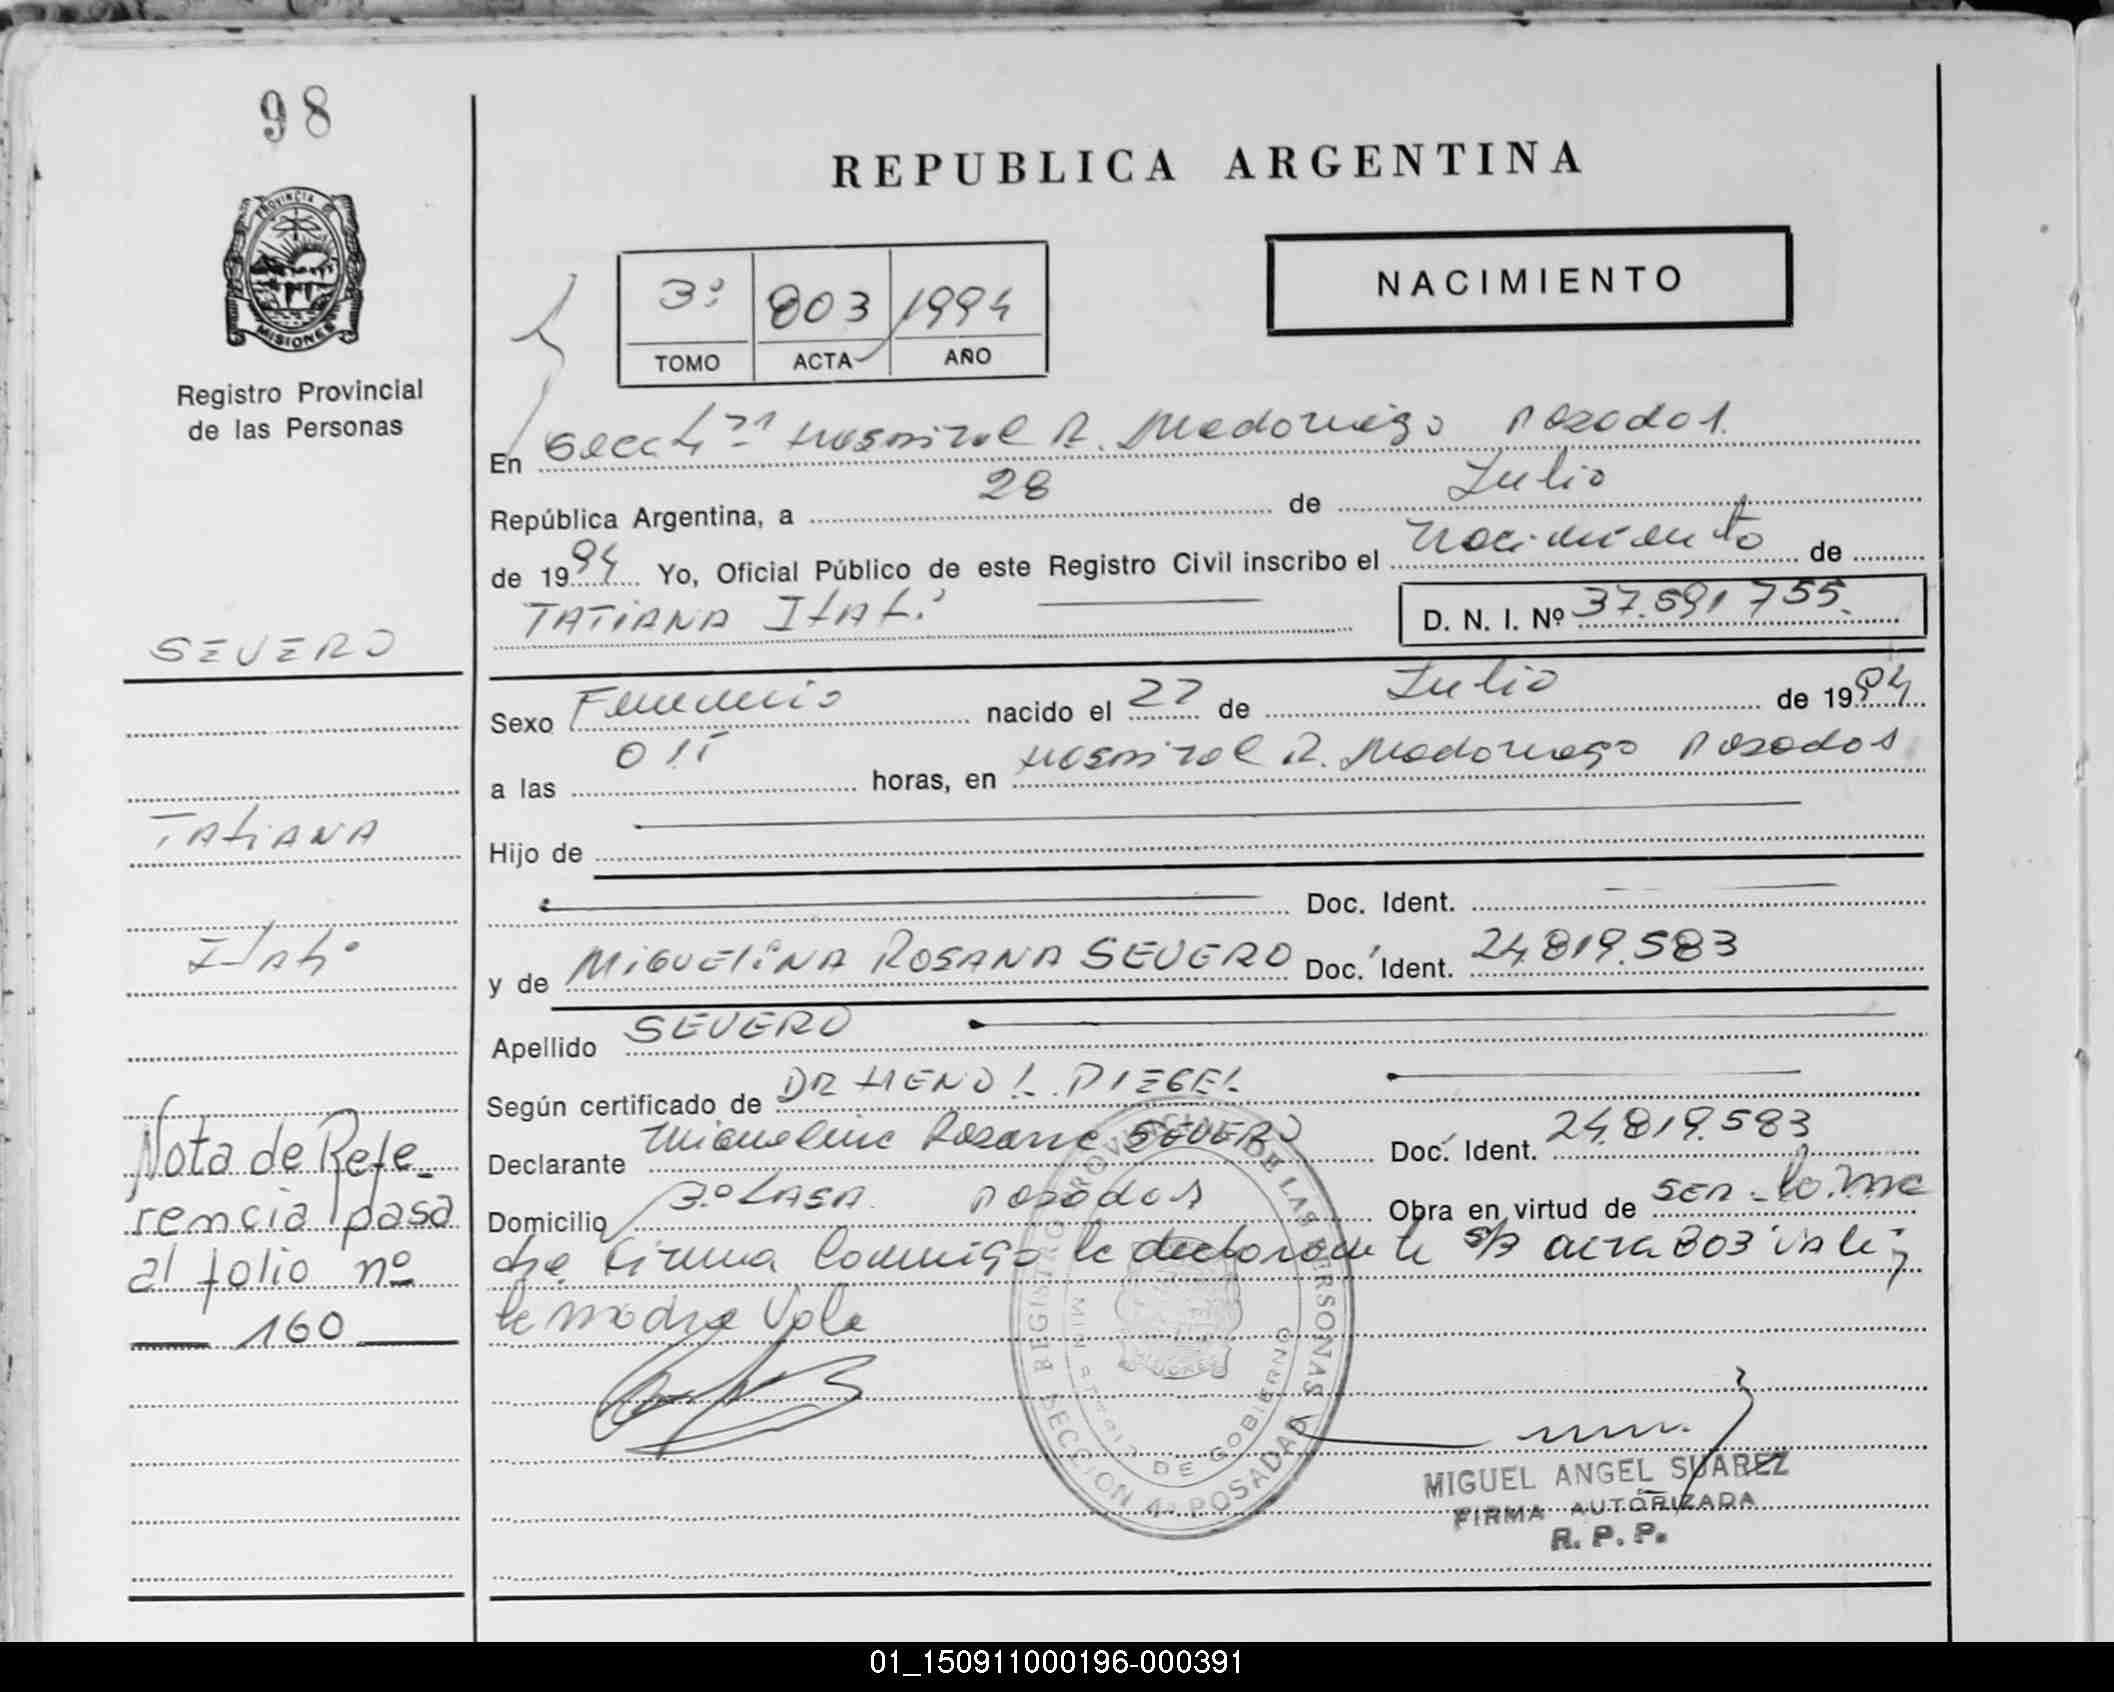 98
REPUBLICA ARGENTINA
PROVINCIA DE
MISIONES
Registro Provincial
de las Personas
NACIMIENTO
3º 803 1994
TOMO ACTA AÑO
En Secc 4ª Hospital R. Madariaga Posadas.
República Argentina, a 28 de Julio
de 1994 Yo, Oficial Público de este Registro Civil inscribo el Nacimiento de
TATIANA ITATÍ D. N. I. Nº 37.591.755.
SEVERO
Sexo Femenino nacido el 22 de Julio de 1994
a las horas, en Hospital R. Madariaga Posadas
TATIANA
Hijo de
Doc. Ident.
Itatí
y de MIGUELINA ROSANA SEVERO Doc. Ident. 24.819.583
Apellido SEVERO
Según certificado de DR
Declarante Miguelina Rosana SEVERO Doc. Ident. 24.819.583
Domicilio Posadas Obra en virtud de
Firma Conmigo la declarante S/B acta 803 Vale;
la madre Vale
Nota de Refe-
rencia pasa
al folio nº
160
REGISTRO PROVINCIAL DE LAS PERSONAS
MINISTERIO DE GOBIERNO
SECCION 4ª POSADAS
MIGUEL ANGEL SUAREZ
FIRMA AUTORIZADA
R. P. P.
01_150911000196-000391